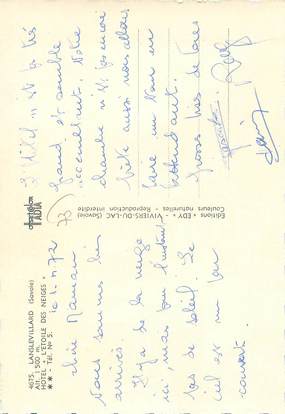 4075. LANSLEVILLARD (Savoie)
Alt. : 1 500 m.
HOTEL « L'ETOILE DES NEIGES »
★★ - Tél. No 5.
Chère Maman
Nous sommes bien
arrivés.
Il y a de la neige
ici, mais pour l'instant
pas de soleil. Le
ciel est un peu
couvert.
Editions « EDY » - VIVIERS-DU-LAC (Savoie)
Couleurs naturelles - Reproduction interdite
73
L'hôtel n'est pas très
grand et semble
Notre
chambre n'est pas encore
prête aussi nous allons
faire un tour en
attendant.
Grosses bises de tous